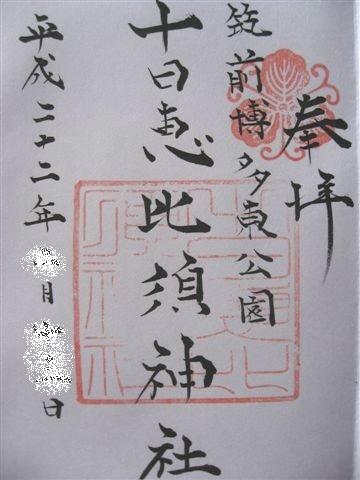 奉拝
筑前博多東公園
十日恵比須神社
平成二十二年 月 日